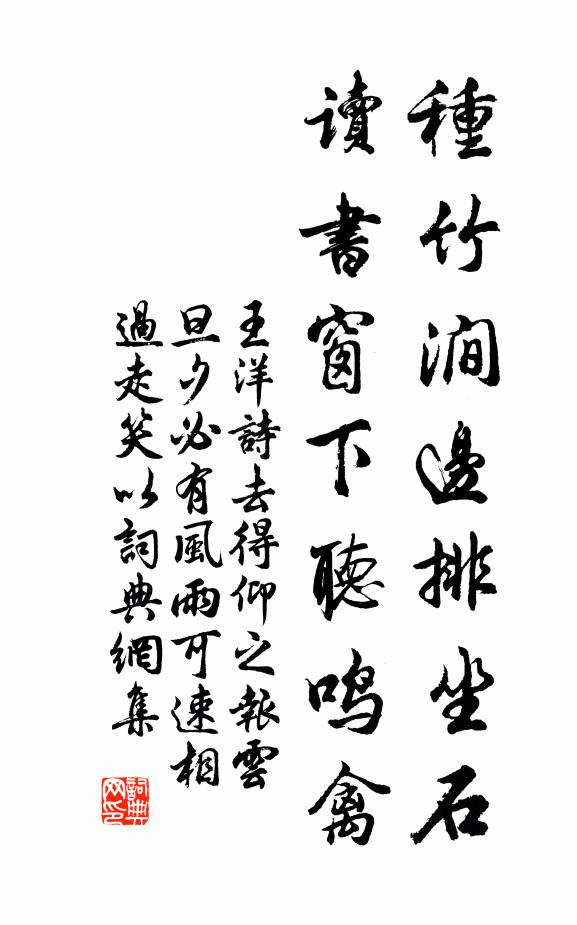 種竹澗邊排坐石
讀書窗下聽鳴禽
王洋詩去得仰之報雲
旦夕必有風雨可速相
過走笑以詞典網集
詞典网印